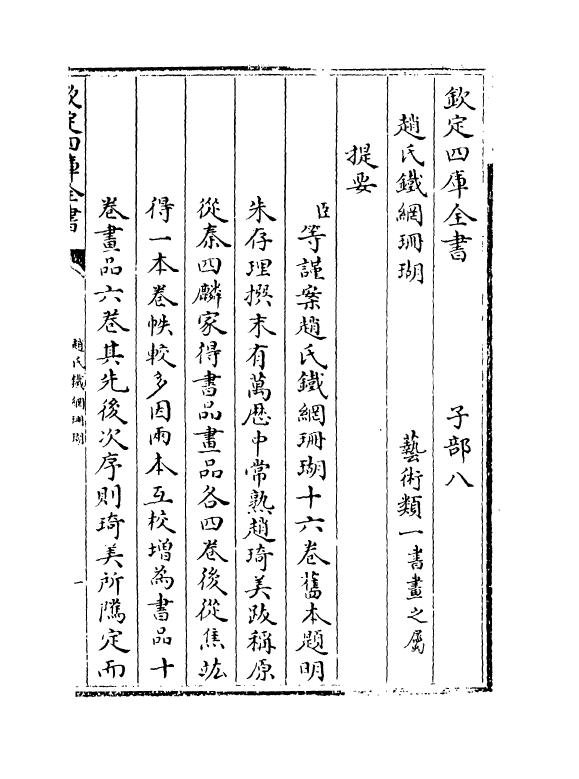 欽定四庫全書　　子部八
趙氏鐵網珊瑚　　藝術類一書畫之屬
提要
臣等謹案趙氏鐵網珊瑚十六卷舊本題明
朱存理撰末有萬歴中常熟趙琦美跋稱原
從秦四麟家得書品畫品各四卷後從焦竑
得一本卷帙較多因兩本互校增為書品十
卷畫品六卷其先後次序則琦美所隲定而
欽定四庫全書
趙氏鐵網珊瑚
一